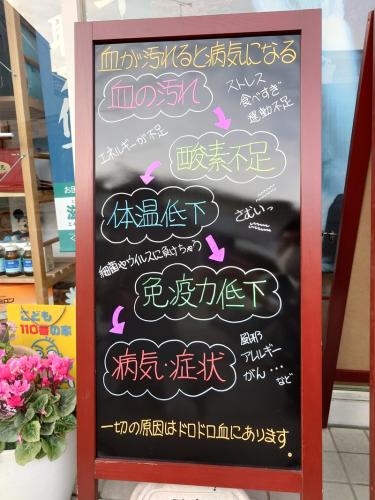 血が汚れると病気になる
血の汚れ
ストレス
食べすぎ
運動不足
エネルギーが不足
酸素不足
体温低下
さむいっ
細菌やウイルスに負けちゃう
免疫力低下
病気・症状
風邪
アレルギー
がん・・・
など
一切の原因はドロドロ血にあります。
こども
110番の家